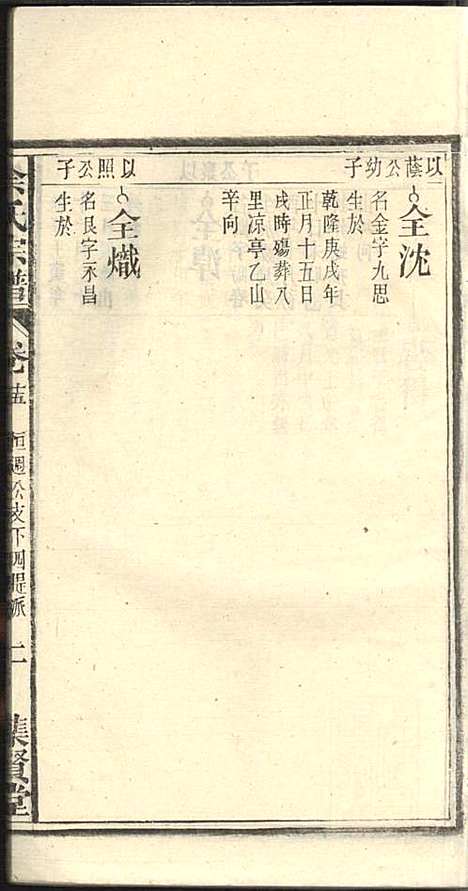 以蔭公幼子
全沈
名金字九思
生於
乾隆庚戌年
正月十五日
戌時殤葬八
里凉亭乙山
辛向
以照公子
全熾
名艮字永昌
生於
氏宗譜 卷 十五 恒週公支下四提派 二 集賢堂